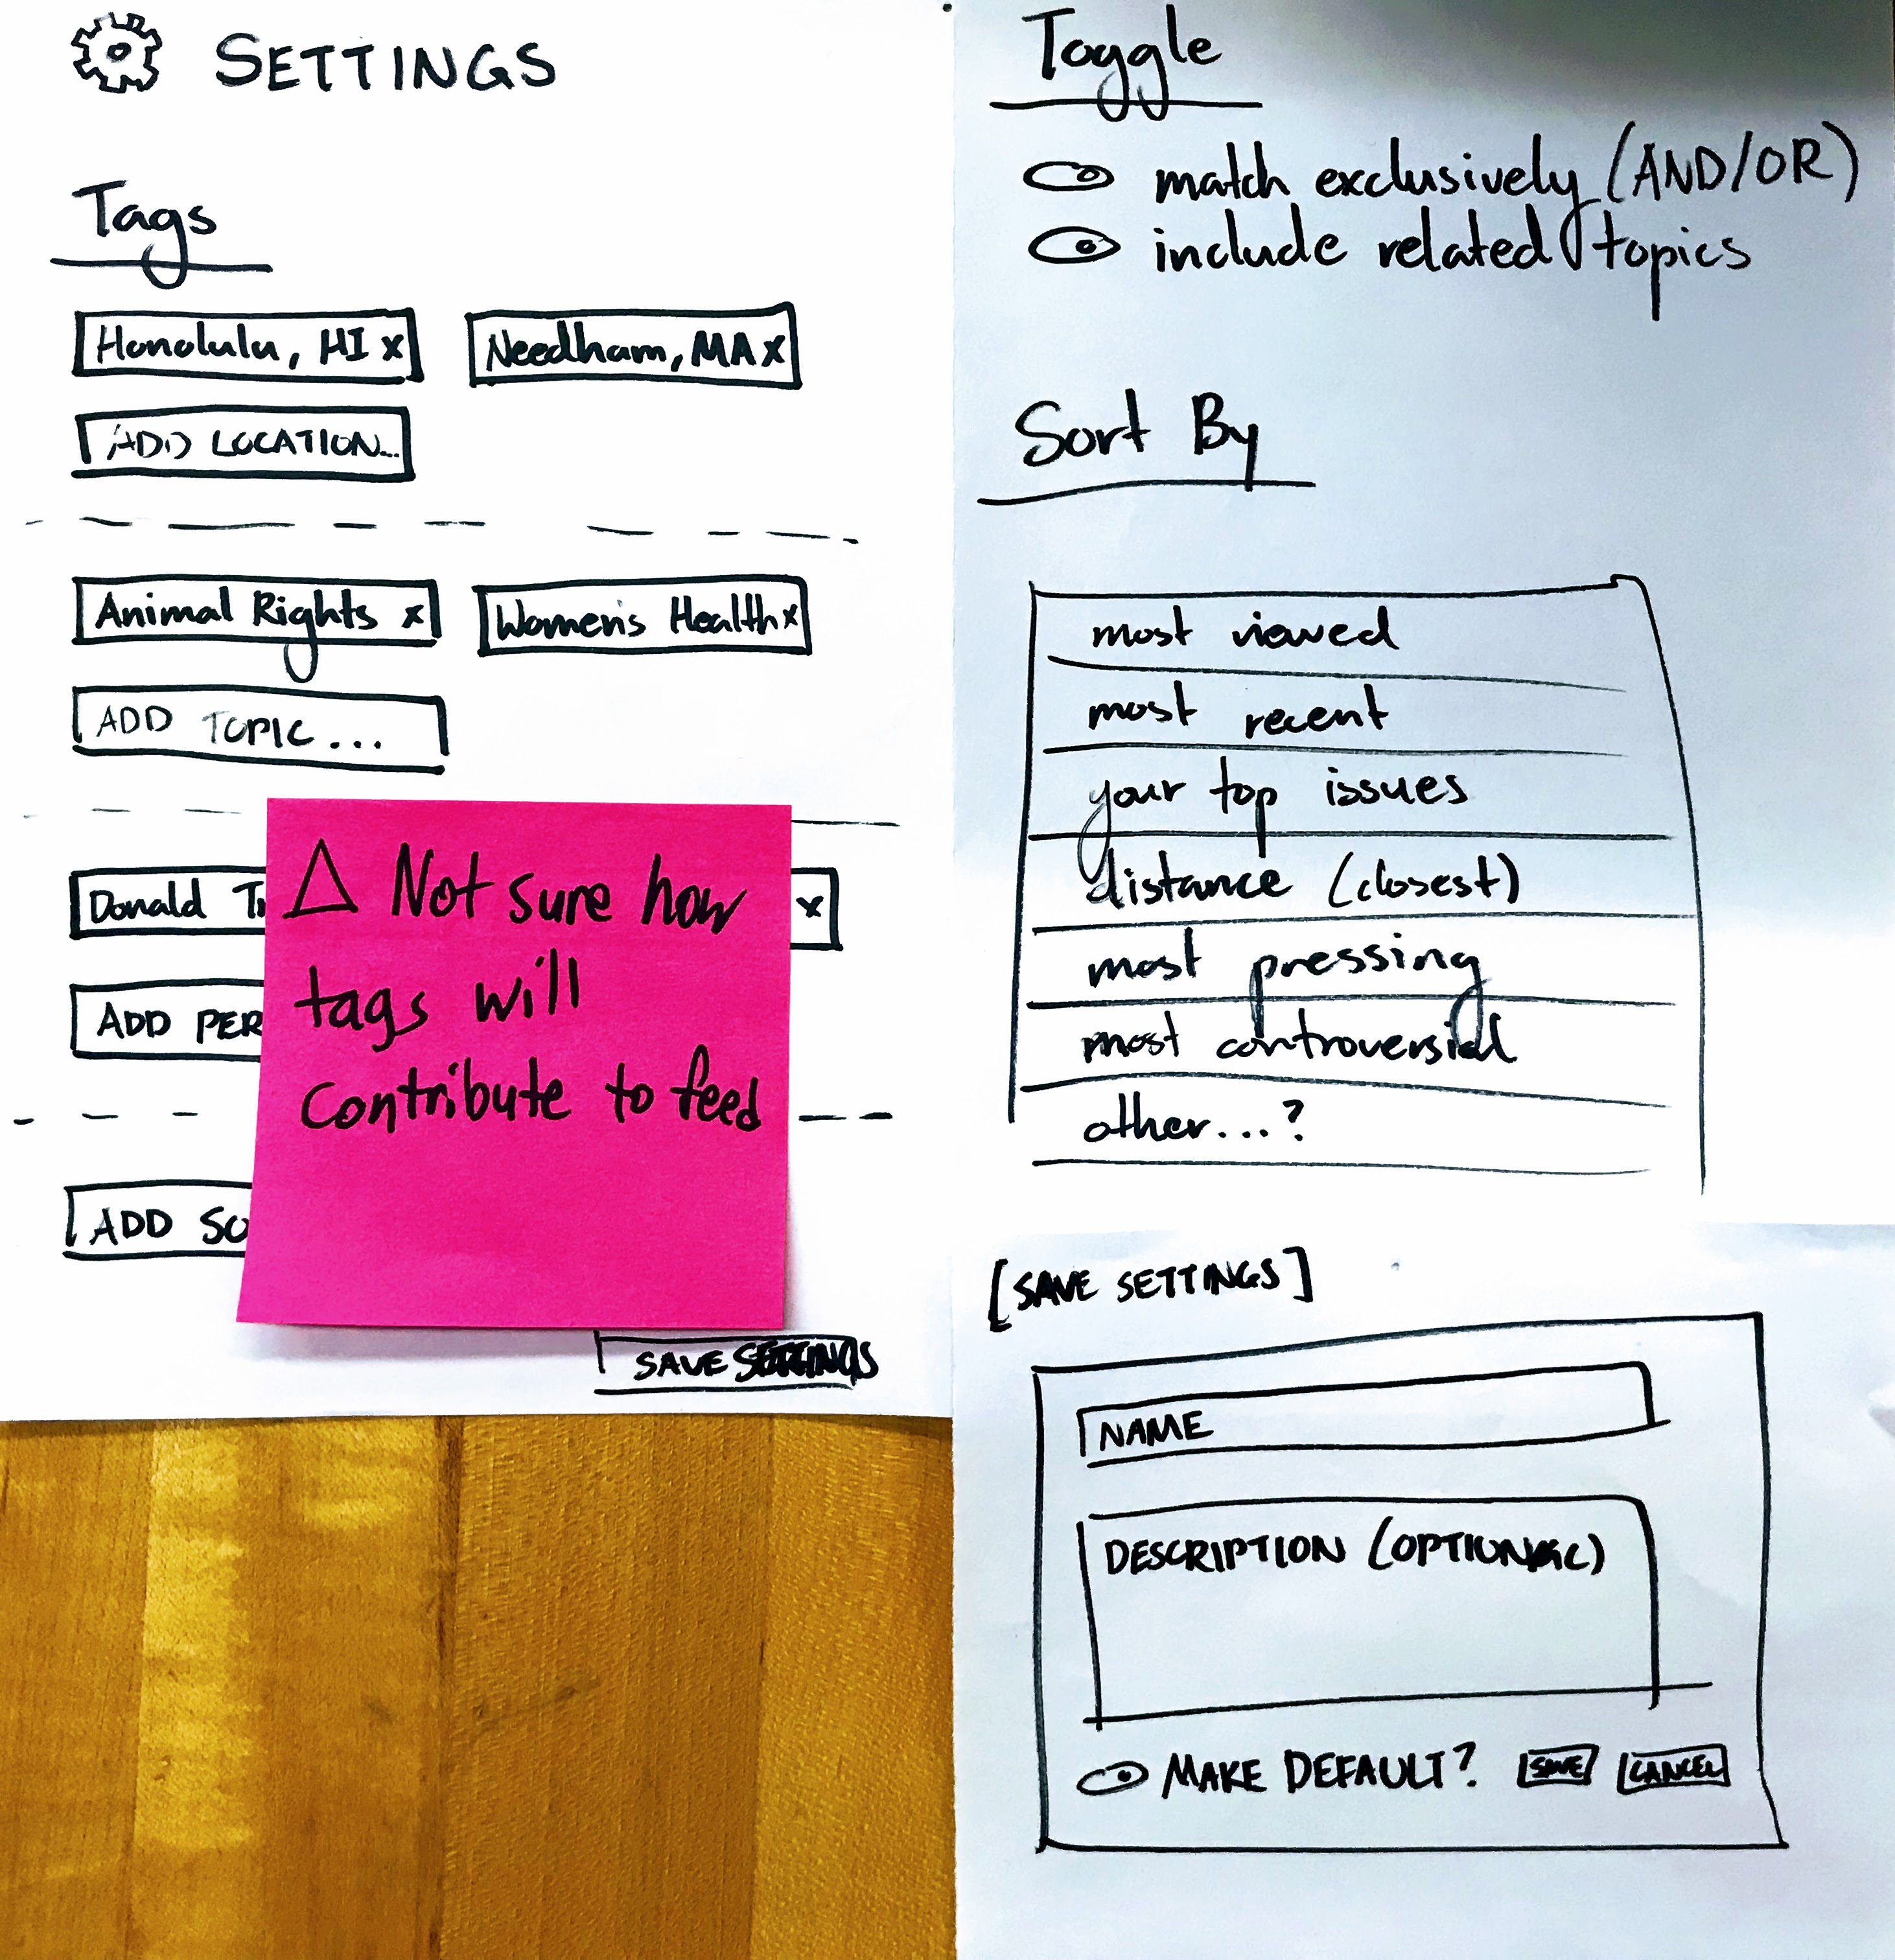 SETTINGS
Tags
Honolulu, HI x
Needham, MA x
ADD LOCATION...
Animal Rights x
Women's Health x
ADD TOPIC...
Donald
x
ADD
ADD
Δ Not sure how
tags will
contribute to feed
SAVE SETTINGS
Toggle
match exclusively (AND/OR)
include related topics
Sort By
most viewed
most recent
your top issues
distance (closest)
most pressing
most controversial
other...?
[SAVE SETTINGS]
NAME
DESCRIPTION (OPTIONAL)
MAKE DEFAULT?
SAVE
CANCEL